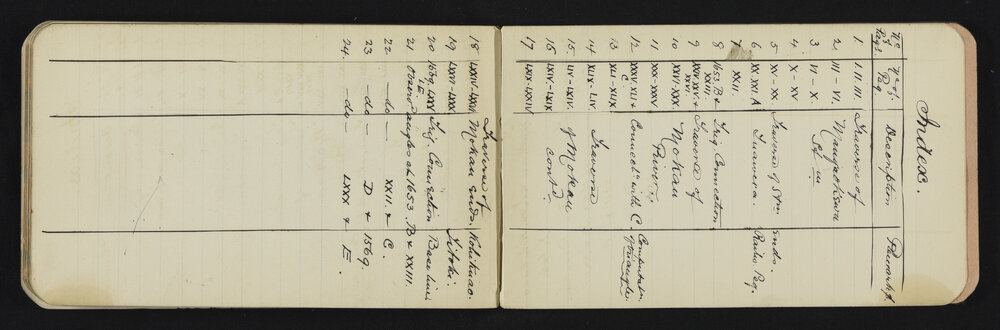 Index.
No of Page No of Peg. Description Remarks
1 I. II. III Traverse of
2 III - VI.
3 VI - X. Stn
4 X - XV
5 XV - XX. Traverse of Stm ends.
6 XX. XXI. A Rakes Peg.
7 XXII.
8 1653. B & XXIII. Trig. Connection
9 XXIV XXV. & XXVI. Traverse of
10 XXVI - XXX. Mokau
11 XXX - XXXV River.
12 XXXV. XLI & C Connectn with C. Computatn of triangles.
13 XLI - XLIX
14 XLIX - LIV. Traverse
15 LIV - LXIV. of Mokau
16 LXIV - LXIX contd
17 LXIX - LXXIV
18 LXXIV - LXXIV Traverse of Mokau ends.
19 LXXIV - LXXX.
20 1569. LXXX & E. Trig. Connection Base line
21 Observd angles at 1653. B & XXIII.
22 do XXII & C.
23 - do - D & 1569.
24. - do - LXXX & E.